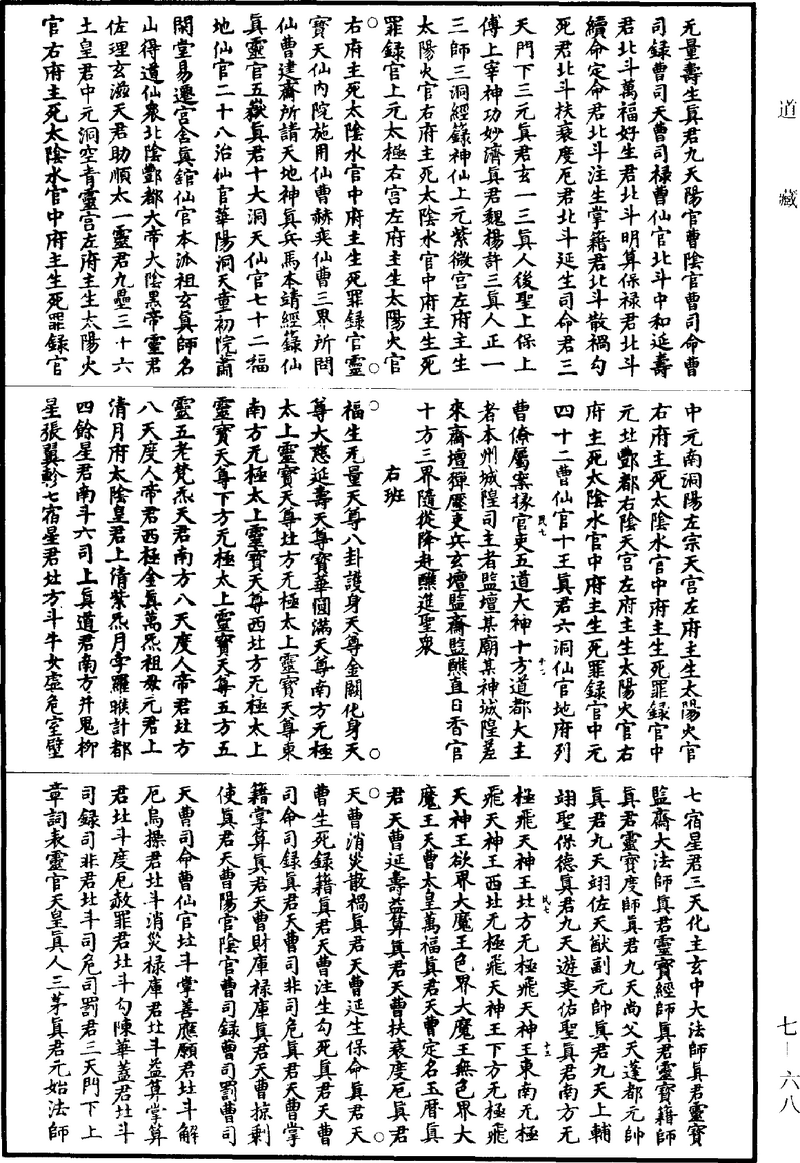 道藏
无量壽生真君九天陽官曹陰官曹司命曹
司錄曹司天曹司祿曹仙官北斗中和延壽
君北斗萬福好生君北斗明算保祿君北斗
續命定命君北斗注生掌籍君北斗散禍勾
死君北斗扶衰度厄君北斗延生司命君三
天門下三元真君玄一三真人後聖上保上
傅上宰神功妙濟真君魏楊許三真人正一
三師三洞經籙神仙上元紫微宮左府主生
太陽火官右府主死太陰水官中府主生死
罪錄官上元太極右宮左府主生太陽火官
右府主死太陰水官中府主生死罪錄官靈
寶天仙內院施用仙曹赫奕仙曹三界所問
仙曹建齋所請天地神真兵馬本靖經籙仙
真靈官五嶽真君十大洞天仙官七十二福
地仙官二十八治仙官華陽洞天童初院蕭
閑堂易遷宮含真館仙官本派祖玄真師名
山得道仙衆北陰酆都大帝大陰黑帝靈君
佐理玄滋天君助順太一靈君九壘三十六
土皇君中元洞空青靈宮左府主生太陽火
官右府主死太陰水官中府主生死罪錄官
中元南洞陽左宗天宮左府主生太陽火官
右府主死太陰水官中府主生死罪錄官中
元北酆都右陰天宮左府主生太陽火官右
府主死太陰水官中府主生死罪錄官中元
四十二曹仙官十王真君六洞仙官地府列
曹僚屬案掾官吏五道大神十方道都大主
者本州城隍司主者監壇某廟某神城隍差
來齋壇彈壓吏兵玄壇監齋監醮直日香官
十方三界隨從降赴醮筵聖衆
右班
福生无量天尊八卦護身天尊金闕化身天
尊大慈延壽天尊寶華圓滿天尊南方无極
太上靈寶天尊北方无極太上靈寶天尊東
南方无極太上靈寶天尊西北方无極太上
靈寶天尊下方无極太上靈寶天尊五方五
靈五老梵炁天君南方八天度人帝君北方
八天度人帝君西極金真萬炁祖母元君上
清月府太陰皇君上清紫炁月孛羅睺計都
四餘星君南斗六司上真道君南方井鬼柳
星張翼軫七宿星君北方斗牛女虛危室壁
七宿星君三天化主玄中大法師真君靈寶
監齋大法師真君靈寶經師真君靈寶籍師
真君靈寶度師真君九天尚父天蓬都元帥
真君九天翊佐天猷副元帥真君九天上輔
翊聖保德真君九天遊奕佑聖真君南方无
極飛天神王北方无極飛天神王東南无極
飛天神王西北无極飛天神王下方无極飛
天神王欲界大魔王色界大魔王無色界大
魔王天曹太皇萬福真君天曹定名玉曆真
君天曹延壽益算真君天曹扶衰度厄真君
天曹消災散禍真君天曹延生保命真君天
曹生死錄籍真君天曹注生勾死真君天曹
司命司錄真君天曹司非司危真君天曹掌
籍掌算真君天曹財庫祿庫真君天曹掠剩
使真君天曹陽官陰官曹司錄曹司罰曹司
天曹司命曹仙官北斗掌善應願君北斗解
厄烏操君北斗消災祿庫君北斗益算掌算
君北斗度厄赦罪君北斗勾陳華蓋君北斗
司錄司非君北斗司危司罰君三天門下上
章詞表靈官天皇真人三茅真君元始法師
七－六八